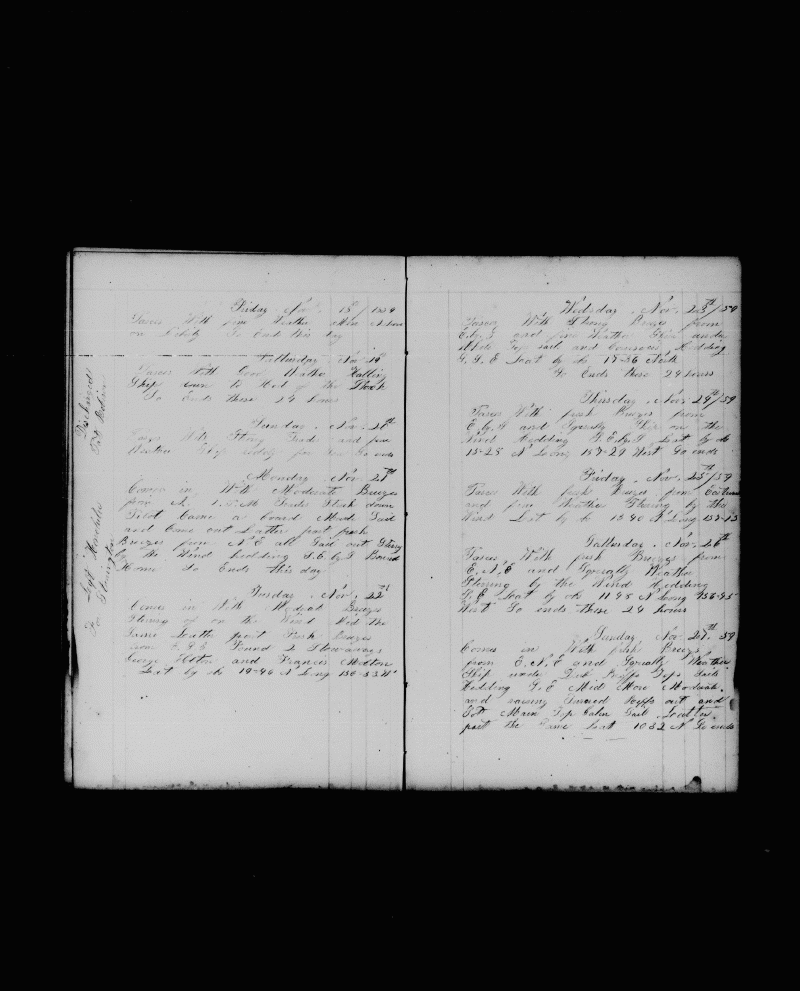 Friday Nov. 18th / 1859
Comes With fine Weather
on Liberty So Ends this day
Satturday Nov 19th
Comes With Good Weather Halling
Ship down to of the Dock
So Ends these 24 hours
Sunday Nov. 20th
With Strong Trade and fine
Weather Ship for Sea So ends
Discharged
Monday. Nov. 21st
Comes in With Moderate Breezes
from Took down
Pilot Came a board Made Sail
and Came out Latter part fresh
Breezes from N E all Sail out Stering
by the Wind hedding S.E. by S Bound
Home So Ends this day
Left Honolulu
For Stonington
Tuesday. Nov. 22d
Comes in With Modrat Breezes
Stering of on the Wind Mid the
Same Latter part Fresh breezes
from E.S.E Found 2 Stowaways
George and Francis
Lat by ob 19-46 N Long 156-53 W
Wedsday. Nov. 23th/59
Comes With Strong Breezes from
E.by.S and fine Weather Ship under
Whole Top sail and Courses Hedding
S.S.E Lat by ob 17-36 North
So Ends these 24 hours
Thursday. Nov. 24th/59
Comes With fresh Breezes from
E.by.S and Squally Ship on the
Wind Hedding S.E.by.S Lat by ob
15-28 N Long 157-29 West So ends
Friday. Nov. 25th/59
Comes With fresh Breezes from
and fine Weather Stering by the
Wind Lat by ob 13 40 N Long 157-13
Satturday. Nov. 26th
Comes With fresh Breezes from
E.N.E and Squally Weather
Stering by the Wind Hedding
S.E Lat by ob 11 45 N Long 156-45
West So ends these 24 hours
Sunday. Nov. 27th. 59
Comes in With fresh Breezes
from E.N.E and Squally Weather
Ship under Top Sails
Hedding S.E Mid More Modrate.
and out and
Set Main Top Galn Sail. Latter.
part the Same Lat 10 32 N So ends